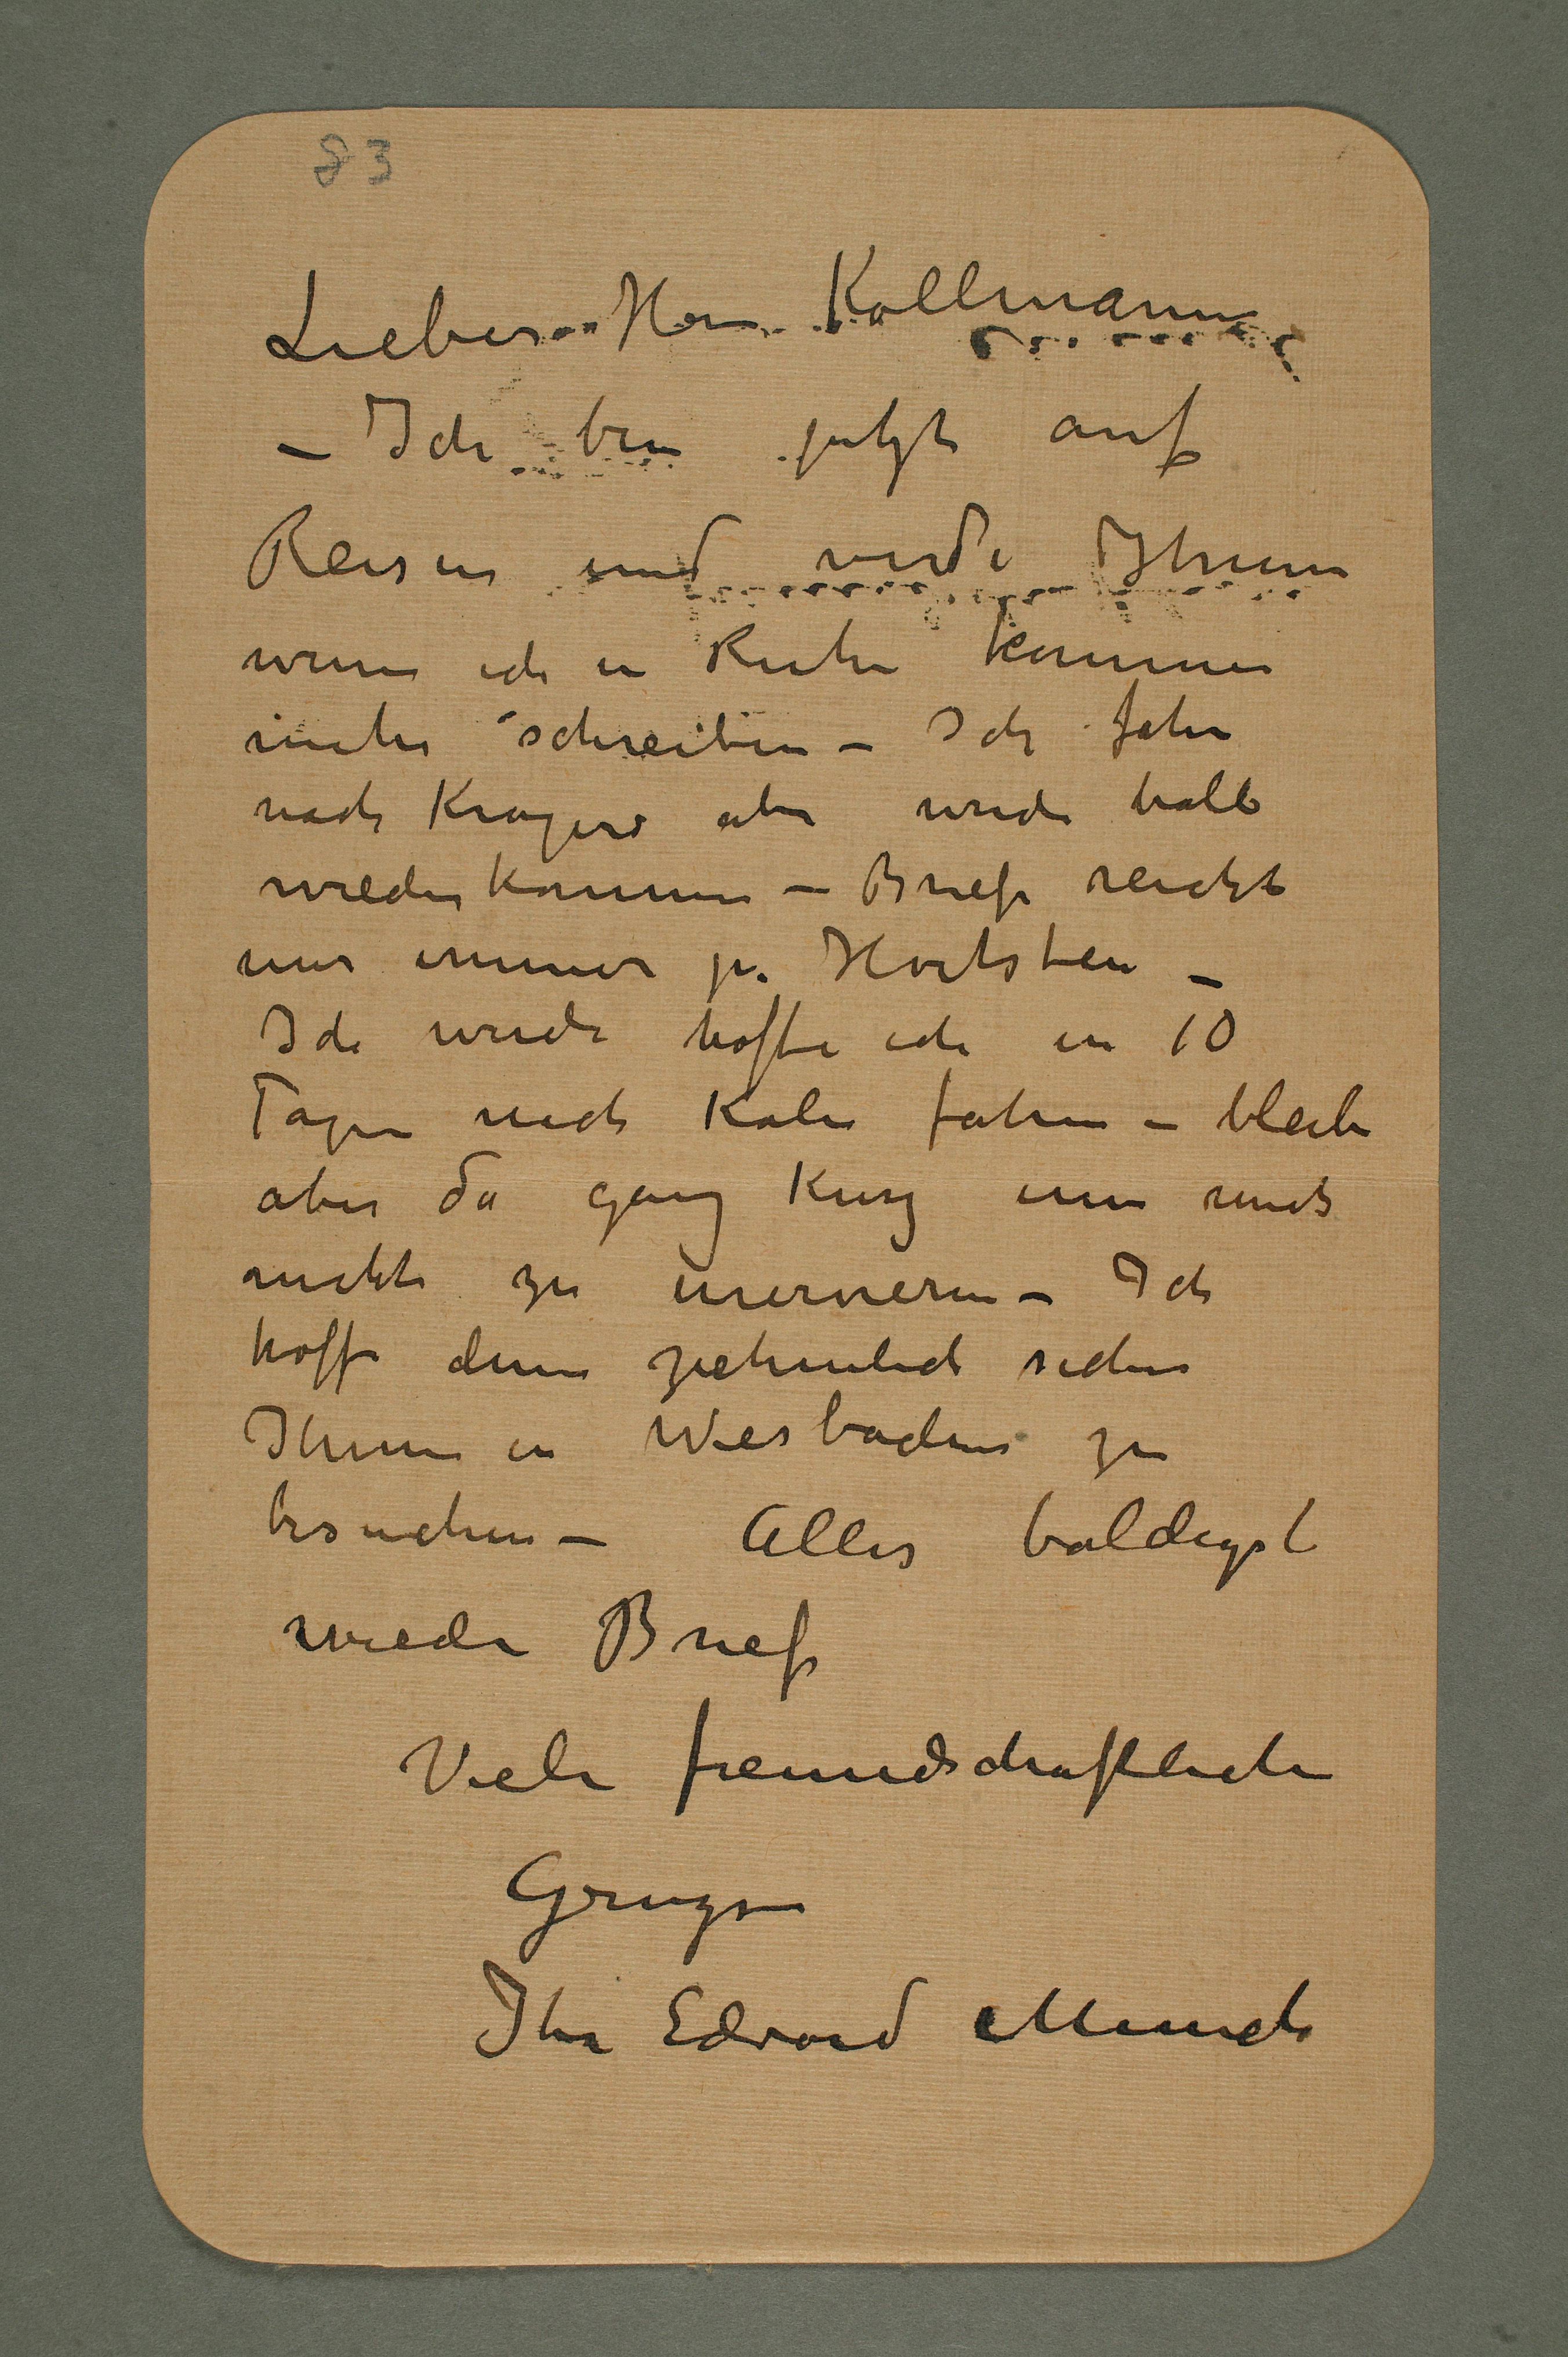 83
Lieber Herr Kollmann
– Ich bin jetzt auf
Reisen und werde Ihnen
wenn ich in Ruhe komme
mehr schreiben – Ich fahre
nach Kragerø aber werde bald
wiederkommen – Briefe reicht
mir immer pr. Hvitsten –
Ich werde hoffe ich in 10
Tagen nach Köln fahren – bleibe
aber da ganz kurz um mich
nicht zu enervieren – Ich
hoffe denn ziehmlich sicher
Ihnen in Wiesbaden zu
besuchen – Alles baldigst
wieder Brief
Viele freundschaftliche
Gruzse
Ihr Edvard Munch